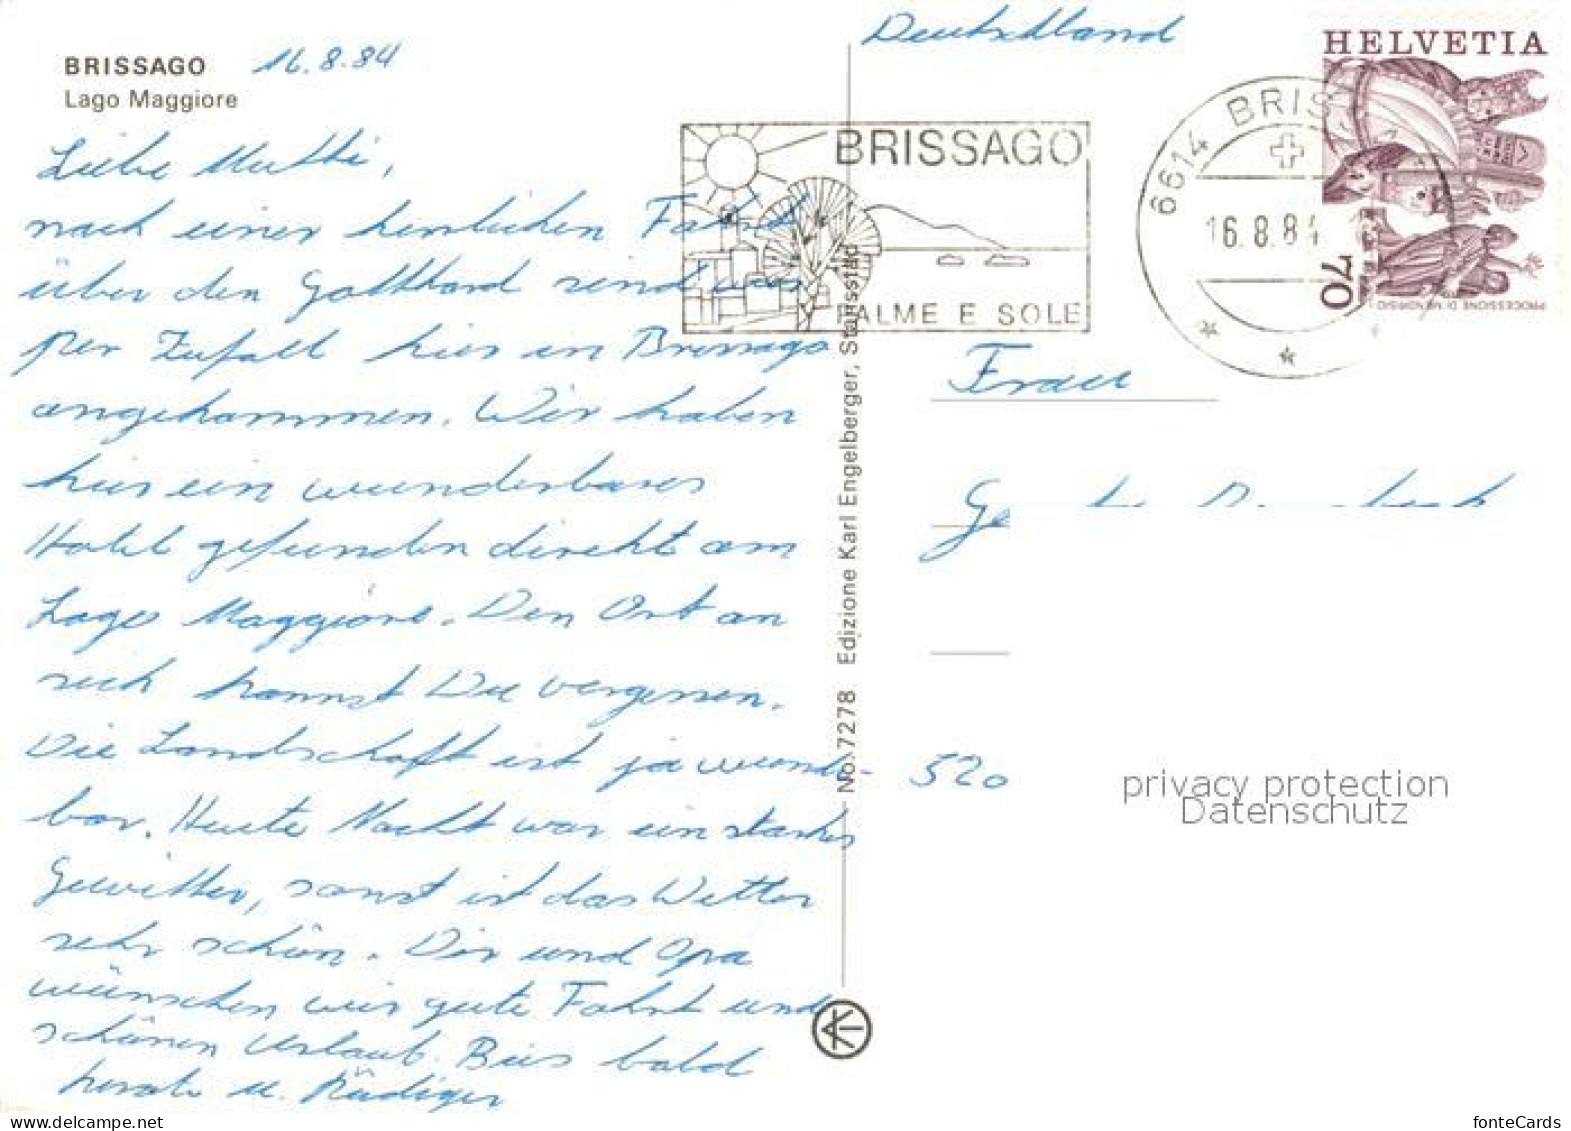 BRISSAGO 16.8.84
Lago Maggiore
Liebe Mutti,
nach einer herrlichen Fahrt
über den Gotthard sind wir
per Zufall hier in Brissago
angekommen. Wir haben
hier ein wunderbares
Hotel gefunden direkt am
Lago Maggiore. Den Ort an
sich kannst Du vergessen.
Die Landschaft ist ja wunder-
bar. Heute Nacht war ein starkes
Gewitter, sonst ist das Wetter
sehr schön. Dir und Opa
wünschen wir gute Fahrt und
schönen Urlaub. Bis bald
u. Rüdiger
No. 7278 Edizione Karl Engelberger, Stansstad
Deutschland
HELVETIA
70
PROCESSIONE DI MENDRISIO
BRISSAGO
PALME E SOLE
6614 BRIS
16.8.84
Frau
520
privacy protection
Datenschutz
www.delcampe.net
fonteCards